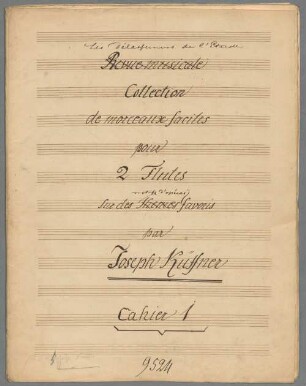 Les Délassements de l'Etude
Revue musicale
Collection
de morceaux faciles
pour
2 Flutes
motifs
sur des Thèmes favoris
par
Joseph Küffner
Cahier 1
9524